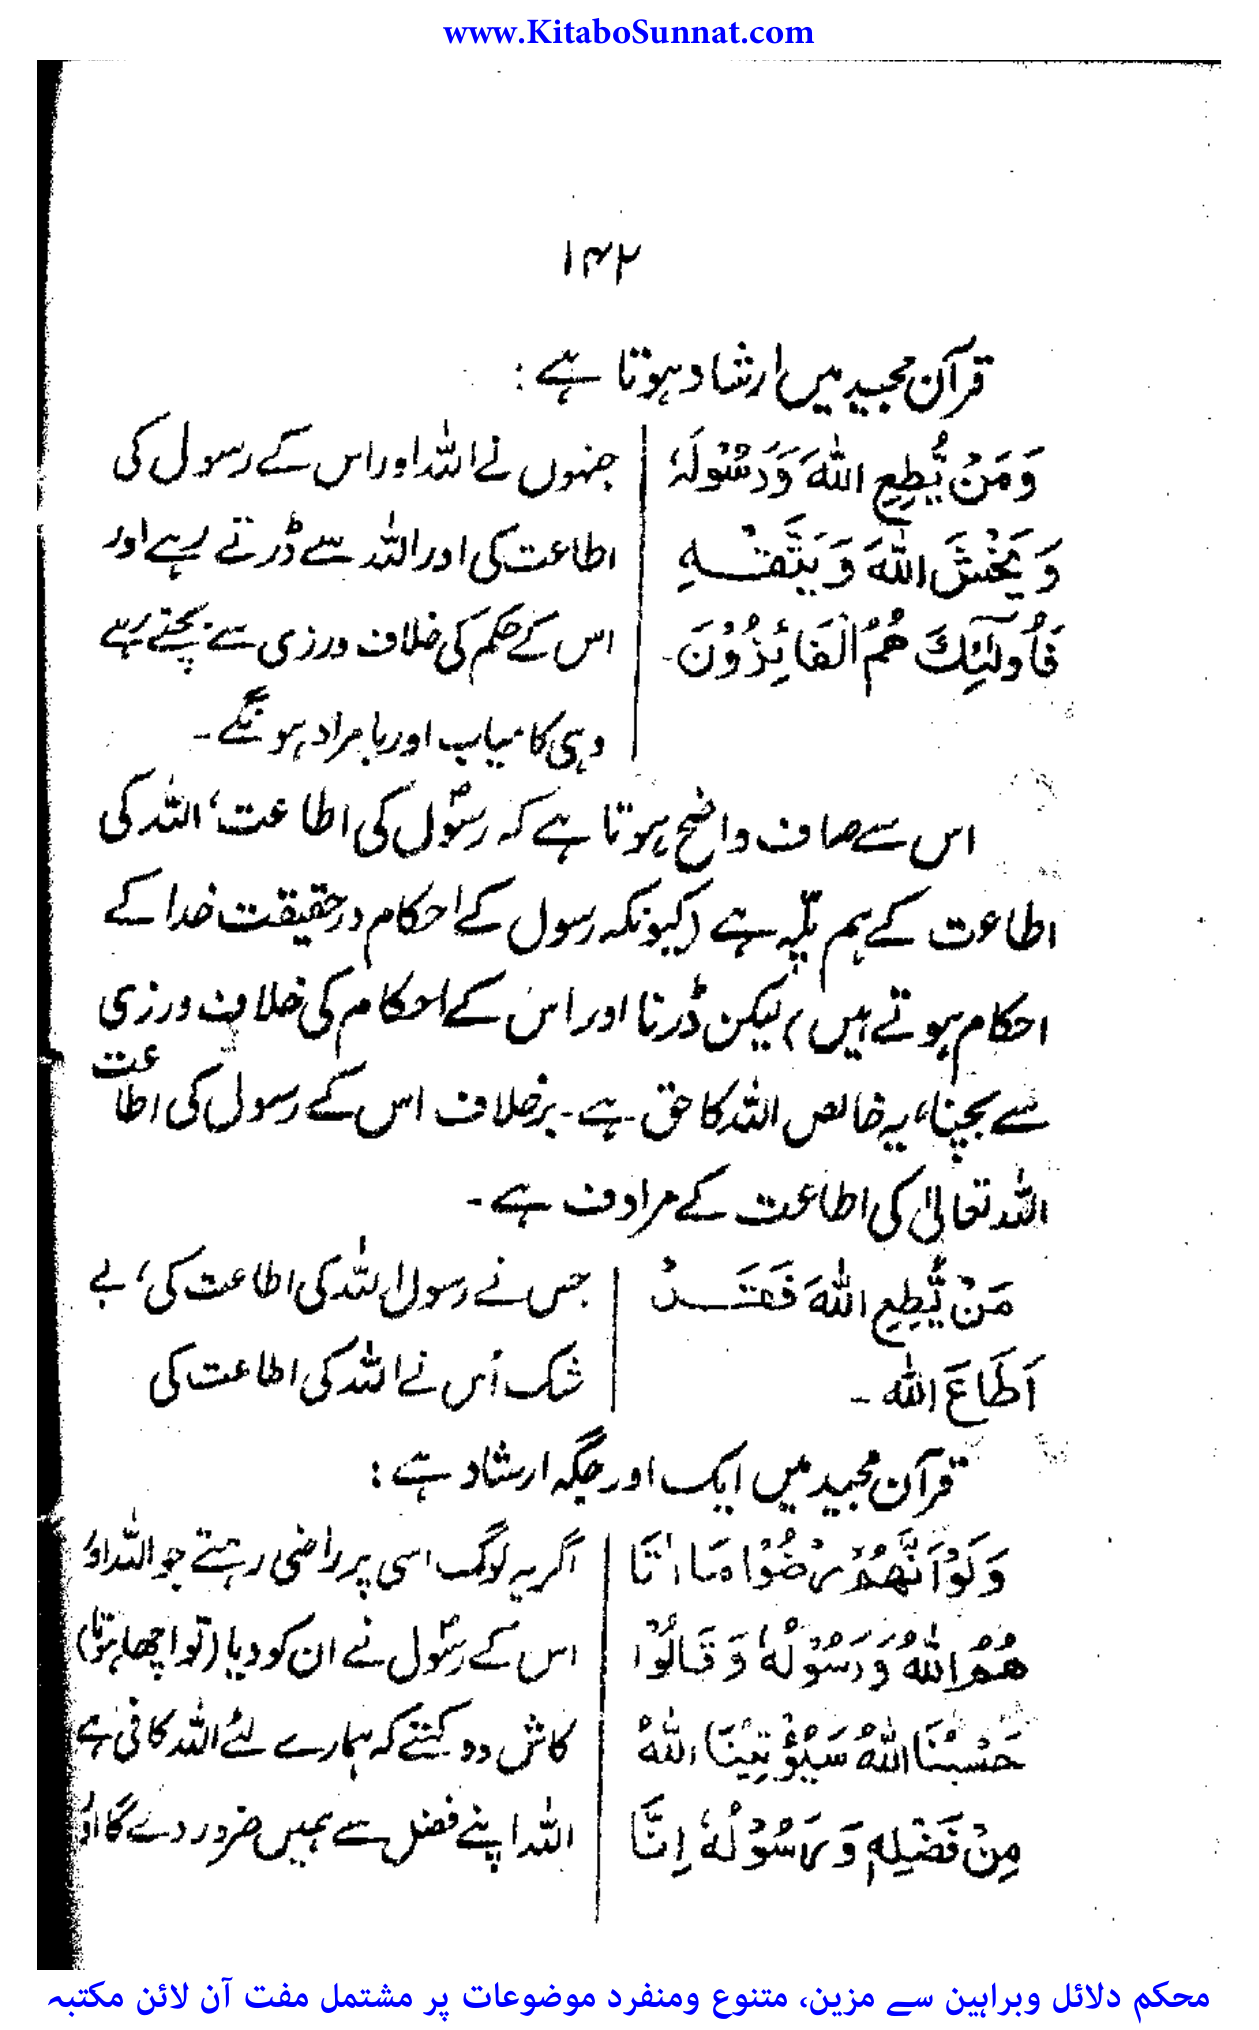 www.KitaboSunnat.com
۱۴۲
قرآن مجید میں ارشاد ہوتا ہے :
وَمَنْ يُّطِعِ اللّٰهَ وَرَسُوْلَهٗ
وَيَخْشَ اللّٰهَ وَيَتَّقْـــهِ
فَاُولٰٓئِكَ هُمُ الْفَائِزُوْنَ ۔
جنہوں نے اللہ اور اس کے رسول کی
اطاعت کی اور اللہ سے ڈرتے رہے اور
اس کے حکم کی خلاف ورزی سے بچتے رہے
وہی کامیاب اور بامراد ہونگے ۔
اس سے صاف واضح ہوتا ہے کہ رسولؐ کی اطاعت، اللہ کی
اطاعت کے ہم پلّہ ہے (کیونکہ رسول کے احکام درحقیقت خدا کے
احکام ہوتے ہیں) لیکن ڈرنا اور اس کے احکام کی خلاف ورزی
سے بچنا، یہ خالص اللہ کا حق ہے ۔ برخلاف اس کے رسول کی اطاعت
اللہ تعالیٰ کی اطاعت کے مرادف ہے ۔
مَنْ يُّطِعِ اللّٰهَ فَقَـــدْ
اَطَاعَ اللّٰه ۔
جس نے رسول اللہ کی اطاعت کی، بے
شک اُس نے اللہ کی اطاعت کی
قرآن مجید میں ایک اور جگہ ارشاد ہے :
وَلَوْ اَنَّهُمْ رَضُوْا مَا اٰتَا
هُمُ اللّٰهُ وَرَسُوْلُهٗ وَقَالُوْا
حَسْبُنَا اللّٰهُ سَيُؤْتِيْنَا اللّٰهُ
مِنْ فَضْلِهٖ وَرَسُوْلُهٗ اِنَّا
اگر یہ لوگ اسی پر راضی رہتے جو اللہ اور
اس کے رسولؐ نے ان کو دیا (تو اچھا ہوتا)
کاش وہ کہتے کہ ہمارے لئے اللہ کافی ہے
اللہ اپنے فضل سے ہمیں ضرور دے گا اور
محکم دلائل وبراہین سے مزین، متنوع ومنفرد موضوعات پر مشتمل مفت آن لائن مکتبہ